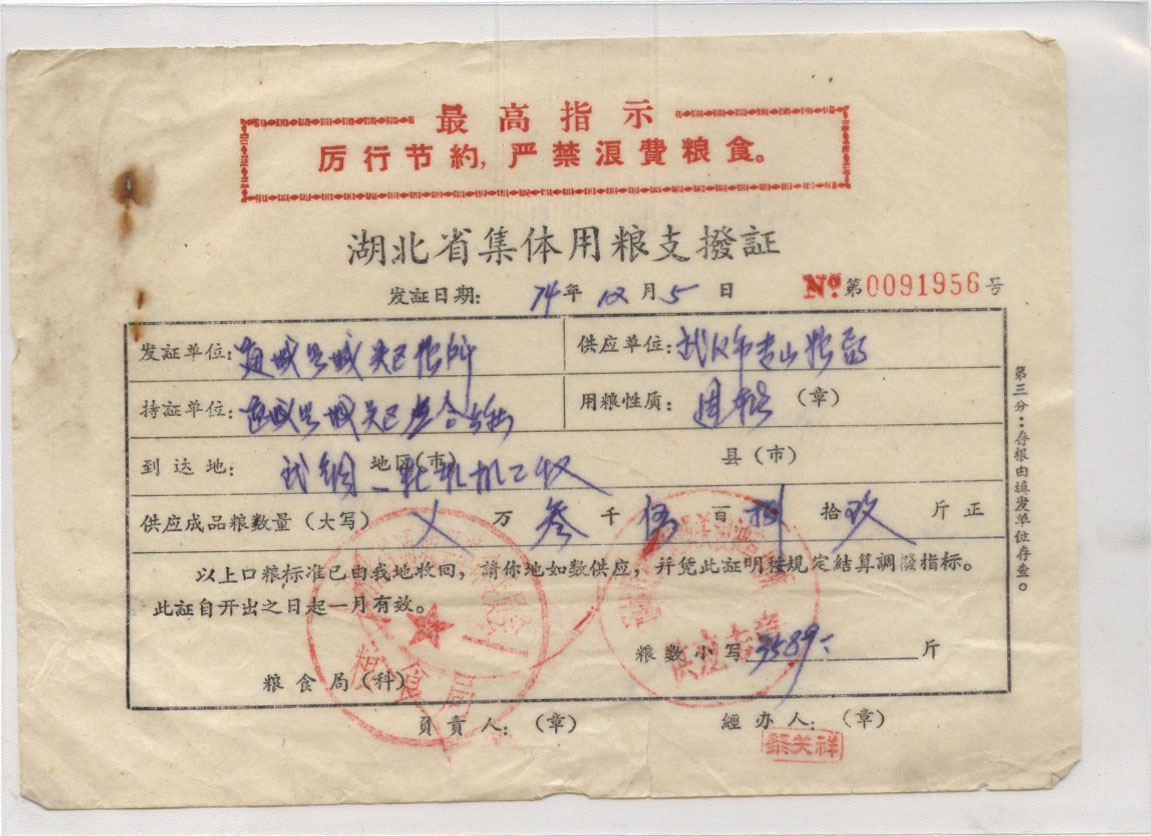 最高指示
厉行节約，严禁浪費粮食。
湖北省集体用粮支撥証
发証日期： 74年 12月 5日 No 第0091956号
发証单位：通城县城关区粮所 供应单位：武汉市青山粮局
持証单位：通城县城关区 用粮性质：周轉（章）
到达地： 武鋼一 地区（市） 县（市）
供应成品粮数量（大写） 乂 万 叁 千 伍 百 捌 拾 玖 斤正
以上口粮标准已由我地收回，請你地如数供应，并凭此証明按規定結算調撥指标。
此証自开出之日起一月有效。
粮数小写 3589.- 斤
粮食局（科）
負責人：（章） 經办人：（章）
第三分：存根由填发单位存查。
粮食局
供应专章